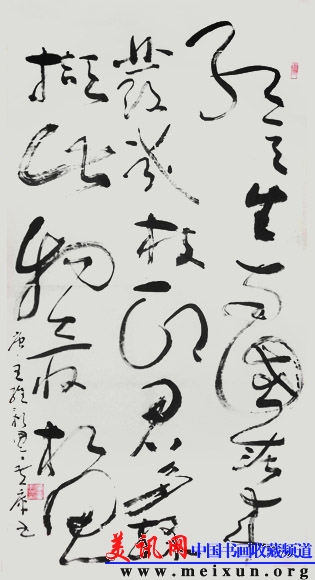 红豆生南國春来
發幾枝願君多采
擷此物最相思
唐王維
美讯网 中国书画收藏频道
www.meixun.org